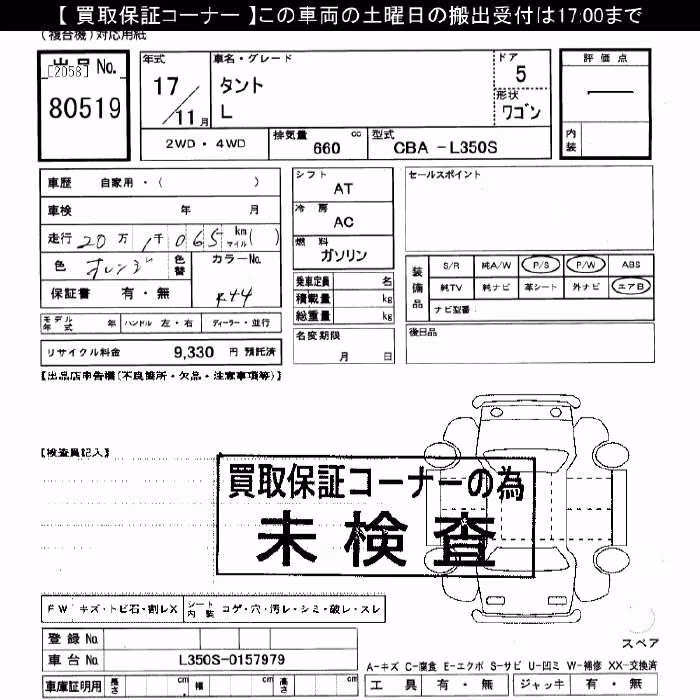 【 買取保証コーナー 】この車両の土曜日の搬出受付は17:00まで
(複合機)対応用紙
出品 No.
[2058]
80519
年式
17
/11月
車名・グレード
タント
L
ドア
5
形状
ワゴン
評価点
内装
2WD・4WD
排気量 660 cc
型式 CBA -L350S
車歴 自家用・( )
車検 年 月
走行 20万 1千065 km マイル( )
色 オレンジ 色替 カラーNo.
保証書 有・無 R44
モデル年式 年 ハンドル 左・右 ディーラー・並行
リサイクル料金 9,330 円 預託済
シフト
AT
冷房
AC
燃料
ガソリン
乗車定員 名
積載量 kg
総重量 kg
名変期限
月 日
セールスポイント
装備品
S/R 純A/W P/S P/W ABS
純TV 純ナビ 革シート 外ナビ エアB
ナビ型番
後日品
【出品店申告欄(不良箇所・欠品・注意事項等)】
【検査員記入】
買取保証コーナーの為
未検査
FW キズ・トビ石・割レX シート内装 コゲ・穴・汚レ・シミ・破レ・スレ
登録 No.
車台 No. L350S-0157979
車庫証明用 長さ cm 幅 cm 高さ cm
スペア
A-キズ C-腐食 E-エクボ S-サビ U-凹ミ W-補修 XX-交換済
工具 有・無 ジャッキ 有・無